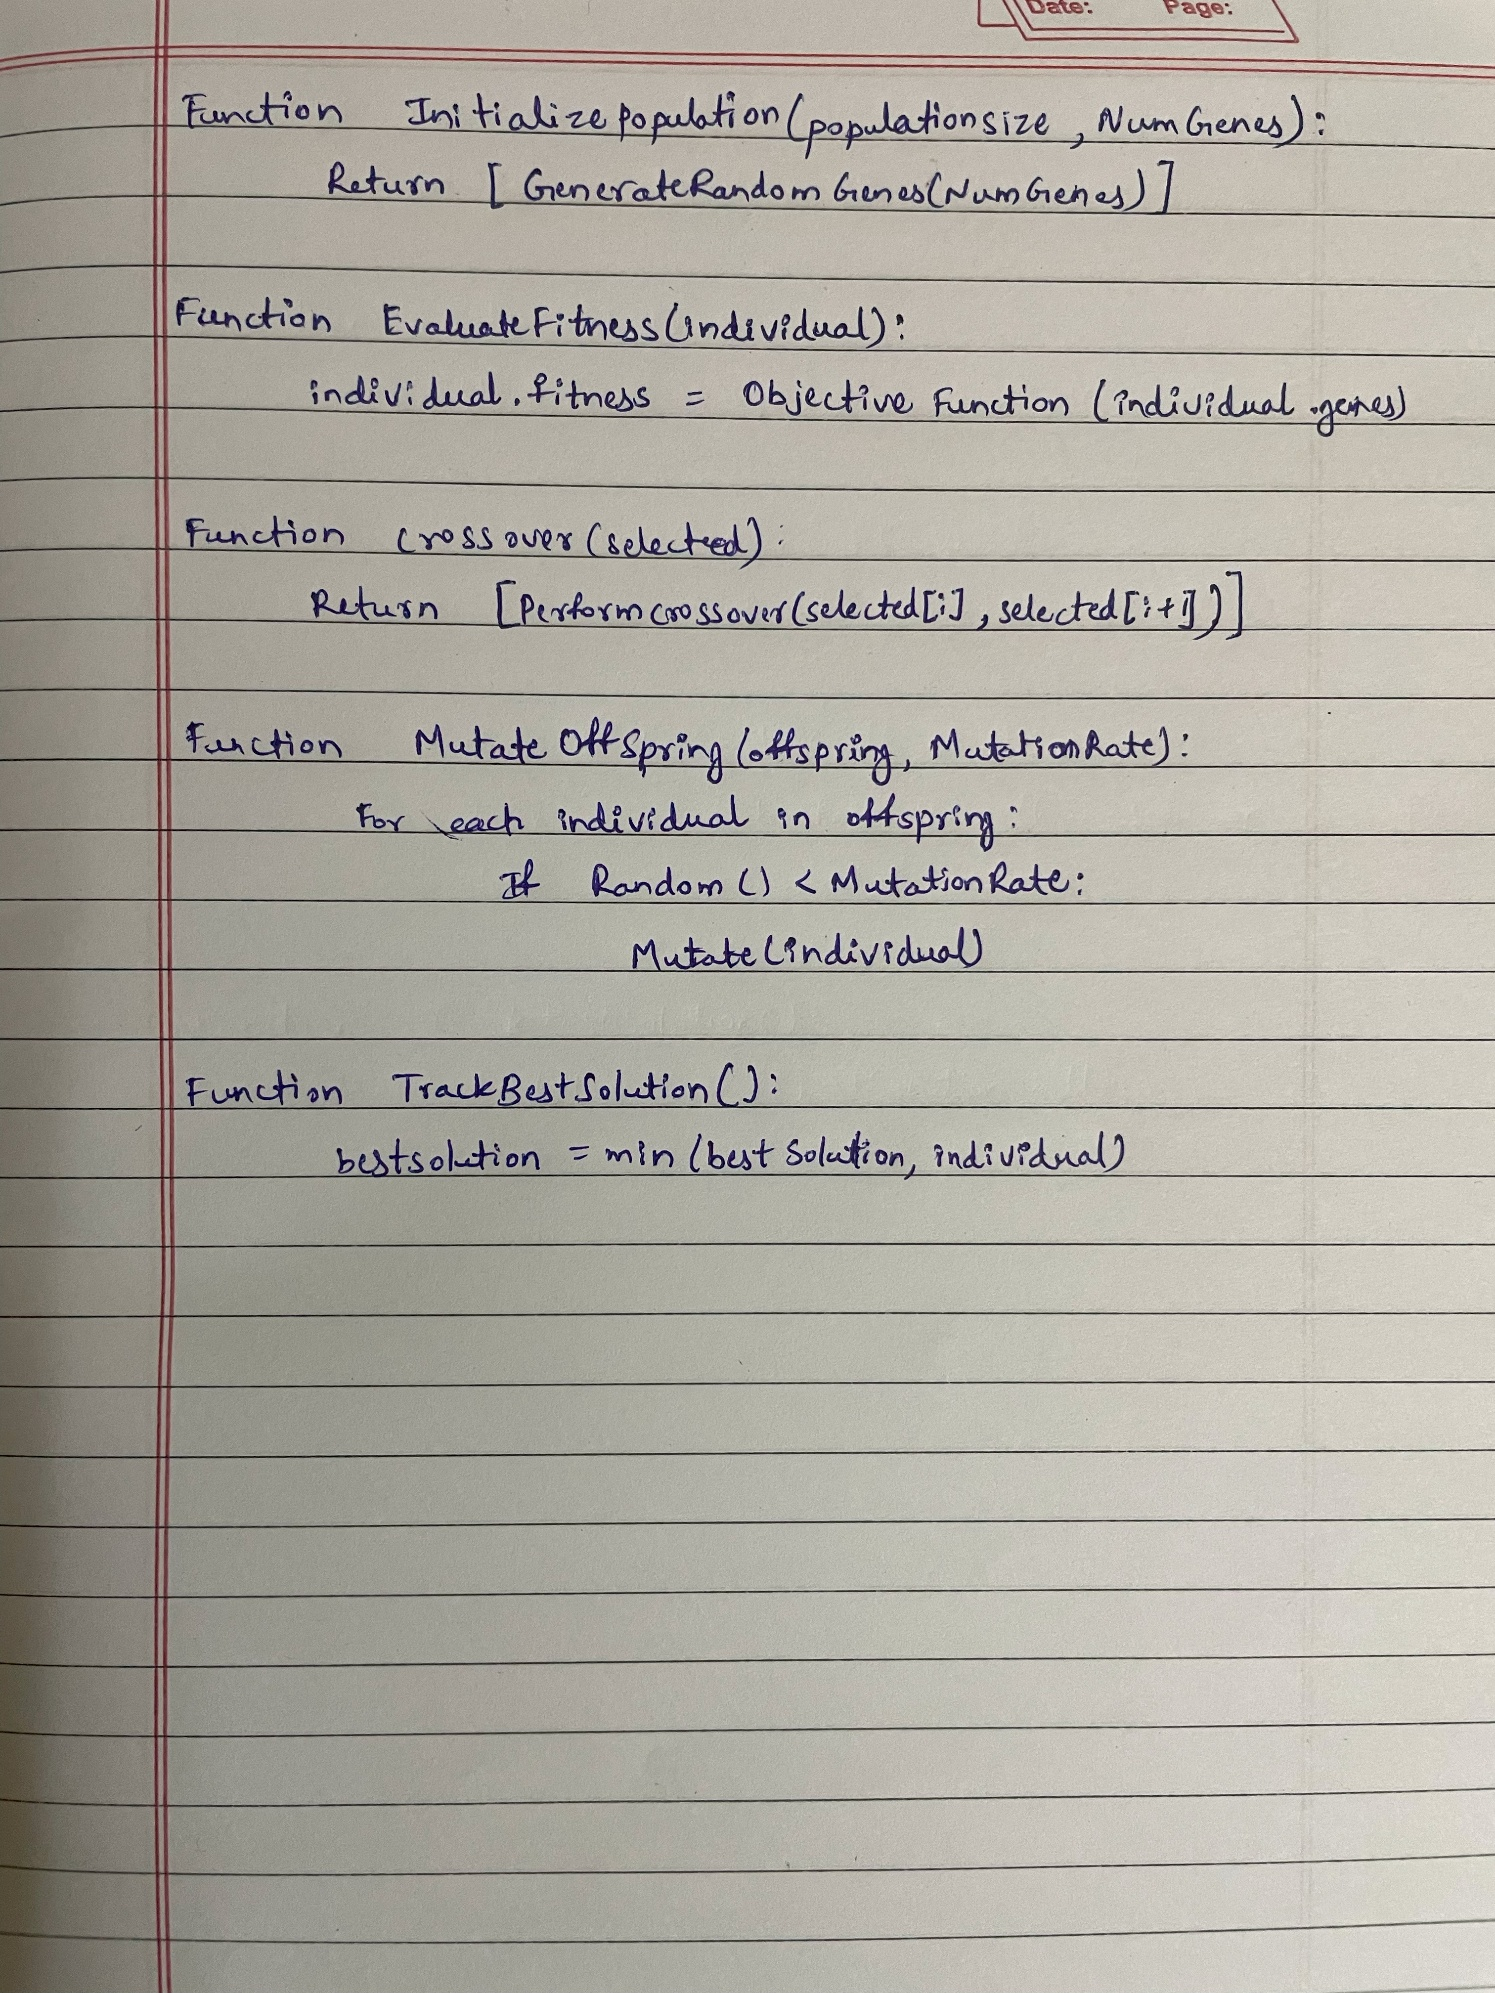 Date: Page:
Function Initializepopulation(populationsize, NumGenes):
Return [GenerateRandomGenes(NumGenes)]
Function EvaluateFitness(individual):
individual.fitness = Objective Function (individual.genes)
Function crossover(selected):
Return [Performcrossover(selected[i], selected[i+1])]
Function Mutate OffSpring (offspring, MutationRate):
For each individual in offspring:
If Random() < MutationRate:
Mutate(individual)
Function TrackBestSolution():
bestsolution = min (best Solution, individual)